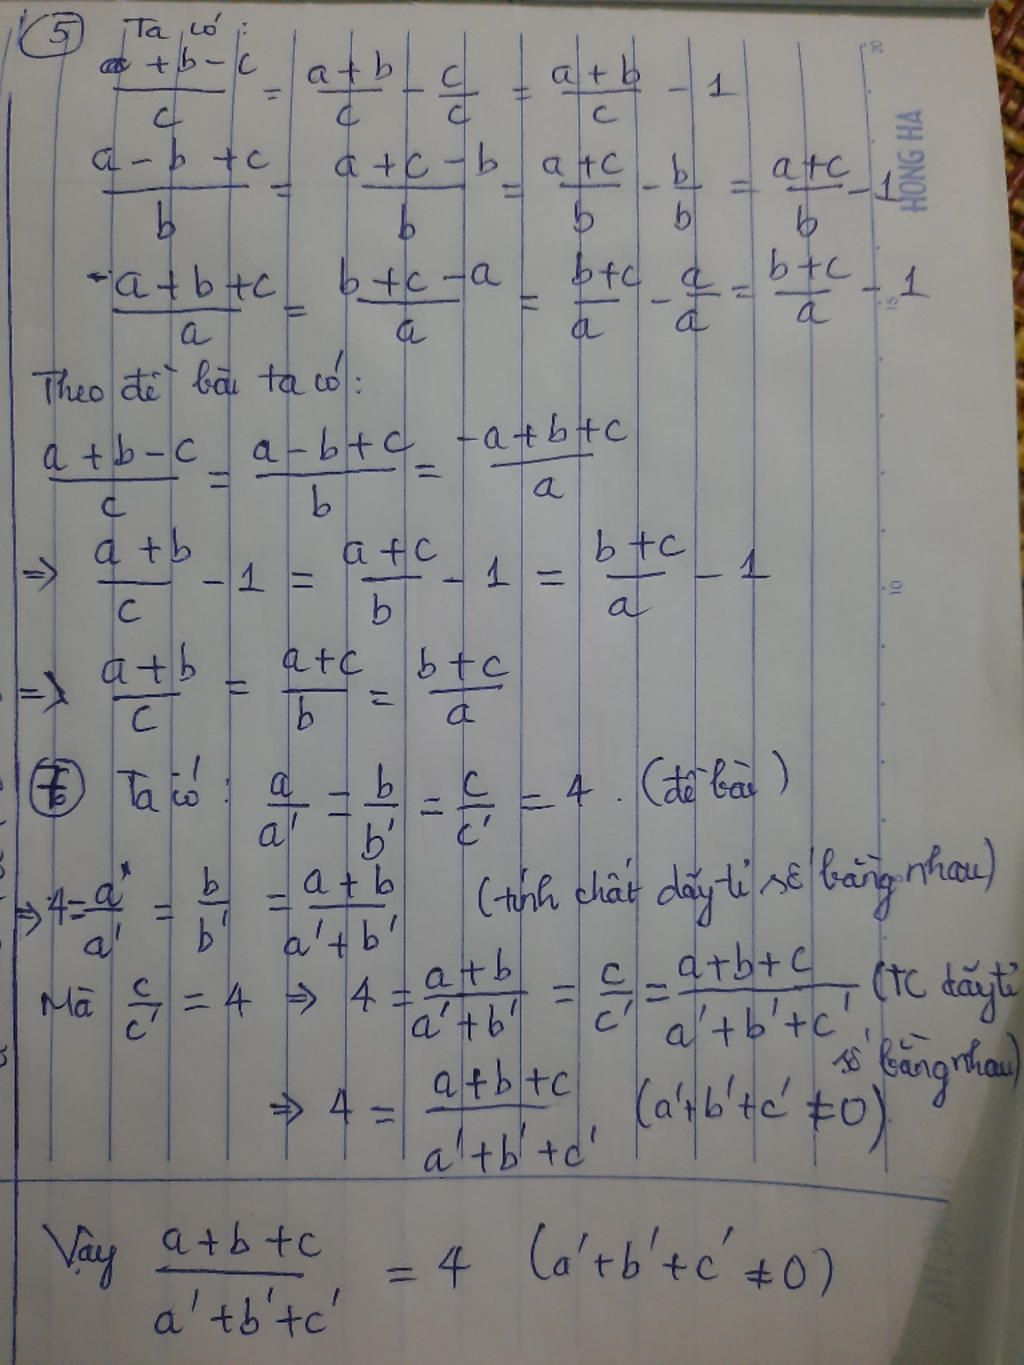 5 Ta có:
a + b - c / c = a + b / c - c / c = a + b / c - 1
a - b + c / b = a + c - b / b = a + c / b - b / b = a + c / b - 1
- a + b + c / a = b + c - a / a = b + c / a - a / a = b + c / a - 1
Theo đề bài ta có:
a + b - c / c = a - b + c / b = - a + b + c / a
⇒ a + b / c - 1 = a + c / b - 1 = b + c / a - 1
⇒ a + b / c = a + c / b = b + c / a
Ta có: a / a' = b / b' = c / c' = 4. (đề bài)
⇒ 4 = a / a' = b / b' = a + b / a' + b' (tính chất dãy tỉ số bằng nhau)
Mà c / c' = 4 ⇒ 4 = a + b / a' + b' = c / c' = a + b + c / a' + b' + c' (TC dãy tỉ
số bằng nhau)
⇒ 4 = a + b + c / a' + b' + c' (a' + b' + c' ≠ 0)
Vậy a + b + c / a' + b' + c' = 4 (a' + b' + c' ≠ 0)
HONG HA
20
15
10